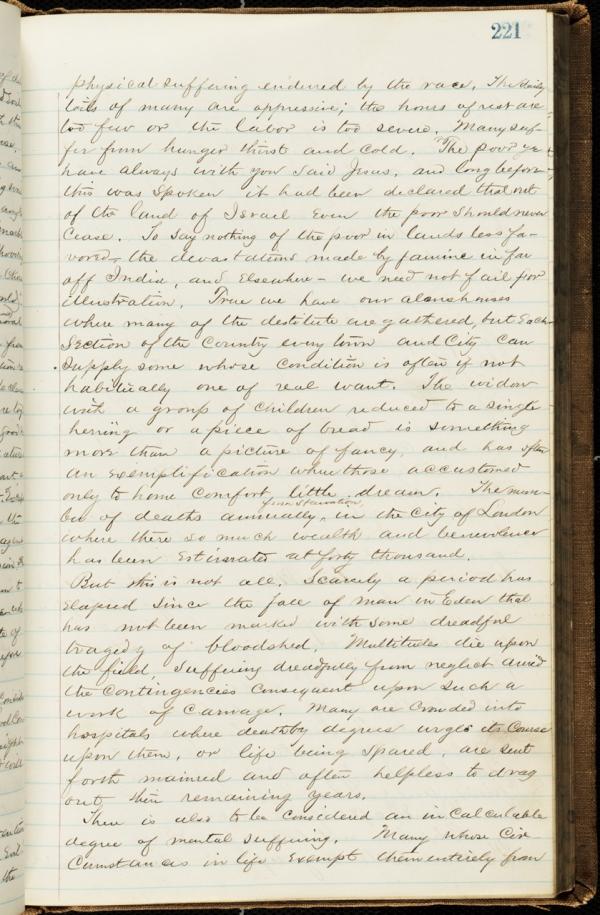 221
physical suffering endured by the race. The daily
toils of many are oppressive; the hours of rest are
too few or the labor is too severe. Many suf-
fer from hunger thirst and cold. "The poor ye
have always with you said Jesus, and long before
this was spoken it had been declared that out
of the land of Israel even the poor should never
cease. To say nothing of the poor in lands less fa-
vored, the devastations made by famine in far
off India, and elsewhere - we need not fail for
illustration. True we have our almshouses
where many of the destitute are gathered, but each
section of the country every town and city can
supply some whose condition is often if not
habitually one of real want. The widow
with a group of children reduced to a single
herring or a piece of bread is something
more than a picture of fancy, and has often
an exemplification when those accustomed
only to home comfort little dream. The num-
from Starvation
ber of deaths annually, in the City of London
where there so much wealth and benevolence
has been estimated at forty thousand.
But this is not all. Scarcely a period has
elapsed since the fall of man in Eden that
has not been marked with some dreadful
tragedy of bloodshed. Multitudes die upon
the field, suffering dreadfully from neglect amid
the contingencies consequent upon such a
work of carnage. Many are crowded into
hospitals where death by degrees urges its course
upon them, or life being spared, are sent
forth maimed and often helpless to drag
out their remaining years.
There is also to be considered an incalculable
degree of mental suffering. Many whose cir
cumstances in life exempt them entirely from